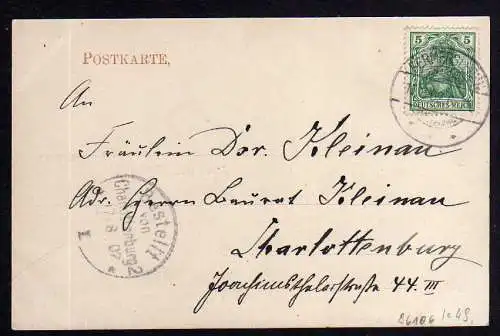 POSTKARTE,
5 5
DEUTSCHES REICH
An
Fräulein Dor. Kleinau
Adr. Herrn Baurat Kleinau
Charlottenburg
Joachimsthalerstraße 44. III
Bestellt
von
Charlottenburg 2
8 07
I